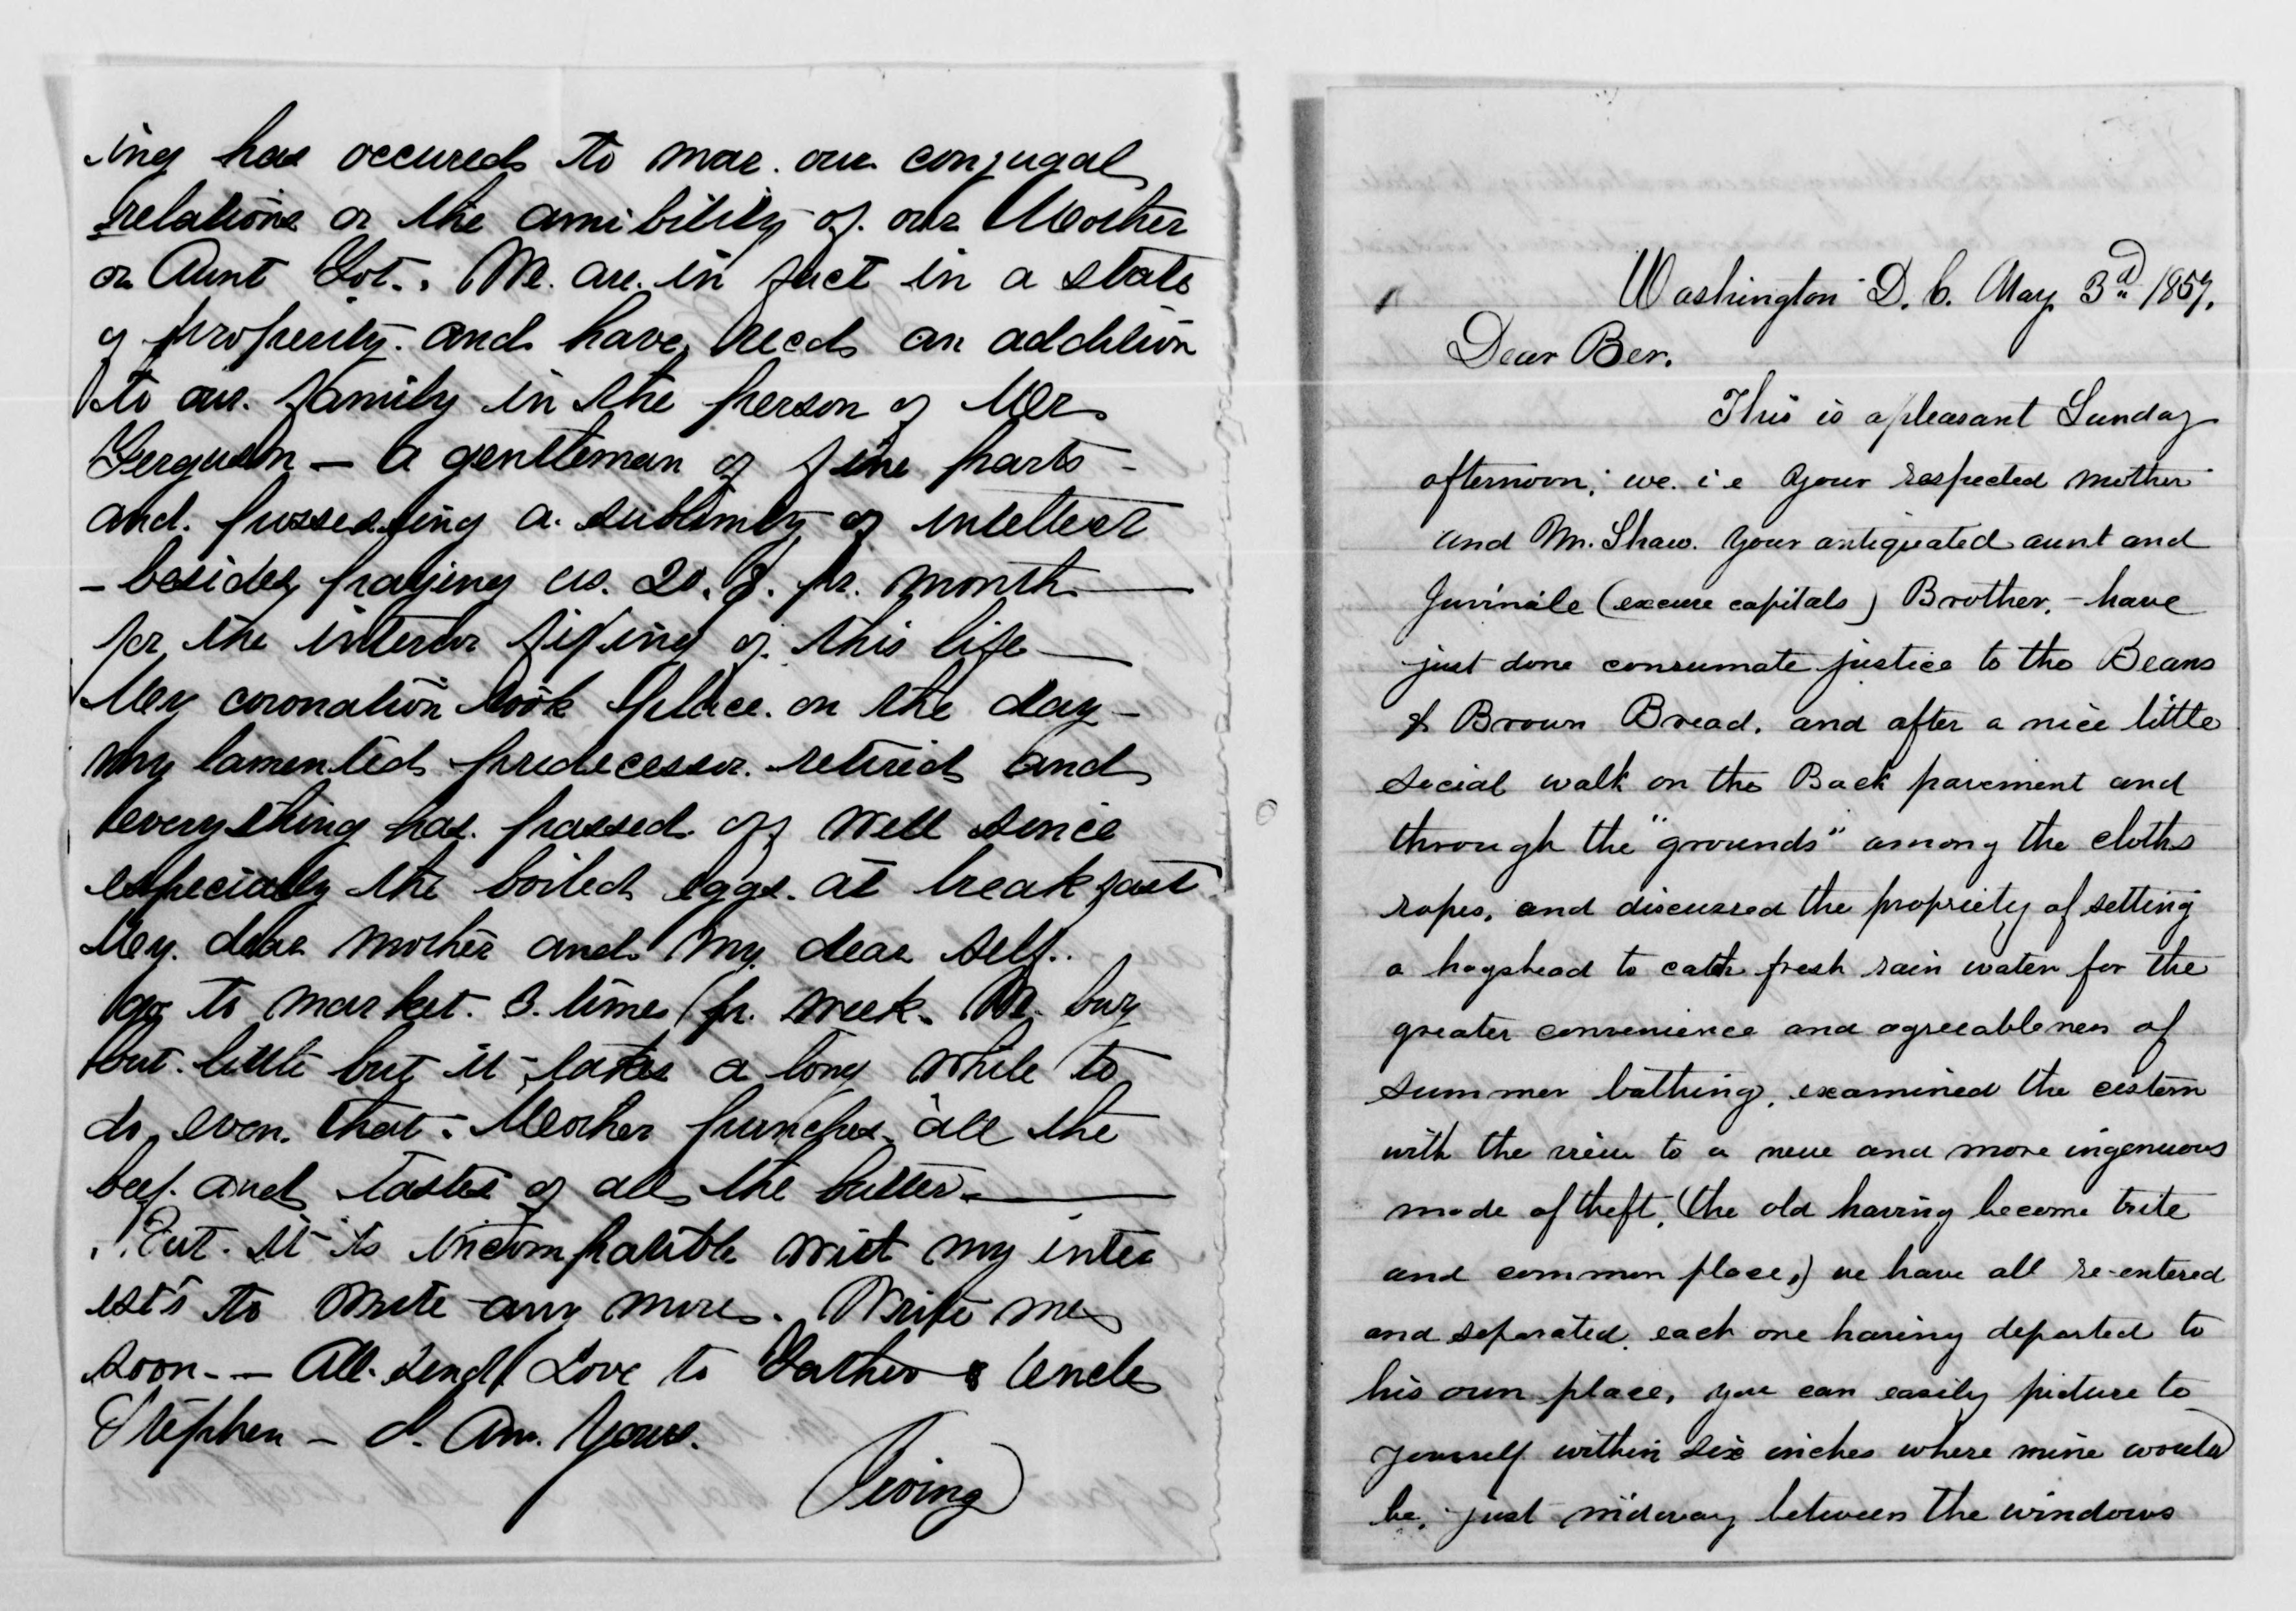 ing has occured to mar our conjugal
relations or the amibility of our Mother
or Aunt Lot. We are in fact in a state
of prosperity and have, need an addition
to our family in the person of Mr
Ferguson — a gentleman of fine parts -
and possessing a sublimity of intellect
- besides paying us 20. $. pr. month
for the interior fixing of this life
My coronation took place on the day -
my lamented predecessor retired and
everything has passed off well since
especially the boiled eggs at breakfast
My dear mother and my dear self..
go to market 3. times pr. week. We buy
but little but it takes a long while to
do even that - Mother punches all the
beef and tastes of all the butter
But it is incompatible wit my inter
ests to write any more. Write me
soon - — All send Love to Father & Uncle
Stephen - I. Am. Yours.
Irving
Washington D. C. May 3d 1857.
Dear Ber.
This is a pleasant Sunday
afternoon; we. i e your respected mother
and Mr. Shaw. your antiquated aunt and
Juvinile (excuse capitals) Brother, - have
just done consumate justice to the Beans
& Brown Bread, and after a nice little
social walk on the Back pavement and
through the "grounds" among the cloths
ropes, and discussed the propriety of setting
a hogshead to catch fresh rain water for the
greater convenience and agreeableness of
summer bathing, examined the cestern
with the view to a new and more ingenuous
mode of theft, (the old having become trite
and common place,) we have all re-entered
and separated, each one having departed to
his own place, you can easily picture to
yourself within six inches where mine would
be, just midway between the windows